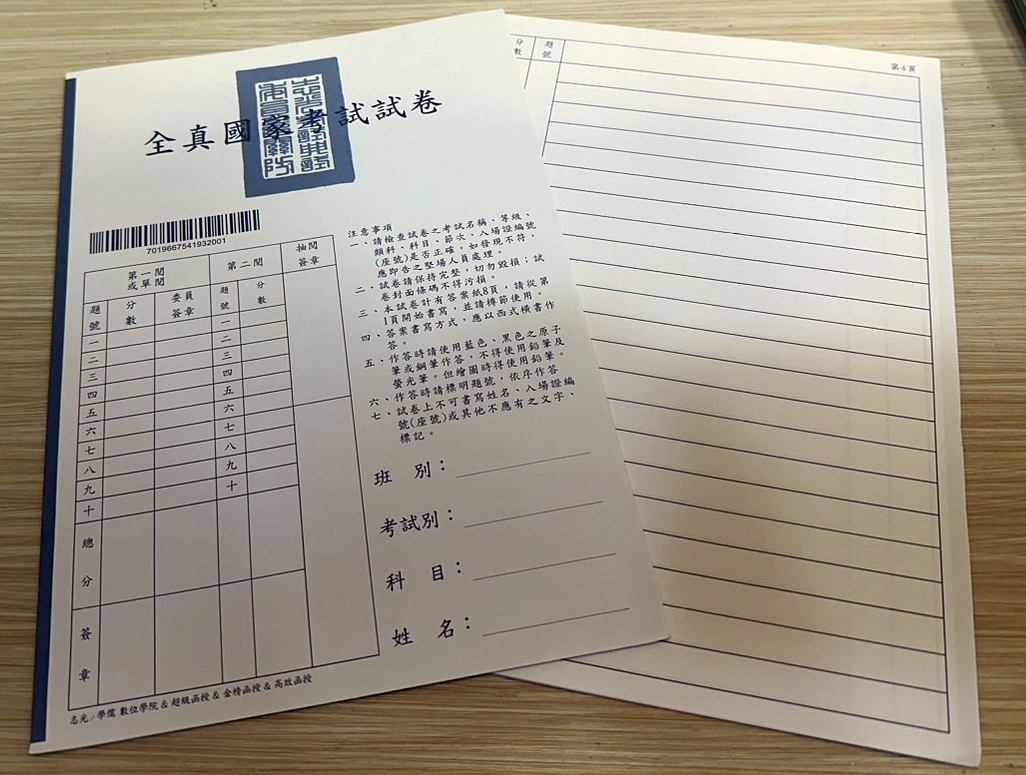 全真國家考試試卷
7019667541932001
第一閱
或單閱
第二閱
抽閱
簽章
題號
分數
委員
簽章
題號
分數
一
二
三
四
五
六
七
八
九
十
總分
簽章
一
二
三
四
五
六
七
八
九
十
注意事項
一、請檢查試卷之考試名稱、等級、
類科、科目、節次、入場證編號
(座號)是否正確。如發現不符，
應即告之監場人員處理。
二、試卷請保持完整，切勿毀損；試
卷封面條碼不得污損。
三、本試卷計有答案紙8頁，請從第
1頁開始書寫，並請樽節使用。
四、答案書寫方式，應以西式橫書作
答。
五、作答時請使用藍色、黑色之原子
筆或鋼筆作答，不得使用鉛筆及
螢光筆。但繪圖時得使用鉛筆。
六、作答時請標明題號，依序作答
七、試卷上不可書寫姓名、入場證編
號(座號)或其他不應有之文字、
標記。
班　別：
考試別：
科　目：
姓　名：
志光／學儒 數位學院 & 超級函授 & 金榜函授 & 高效函授
分數
題號
第4頁